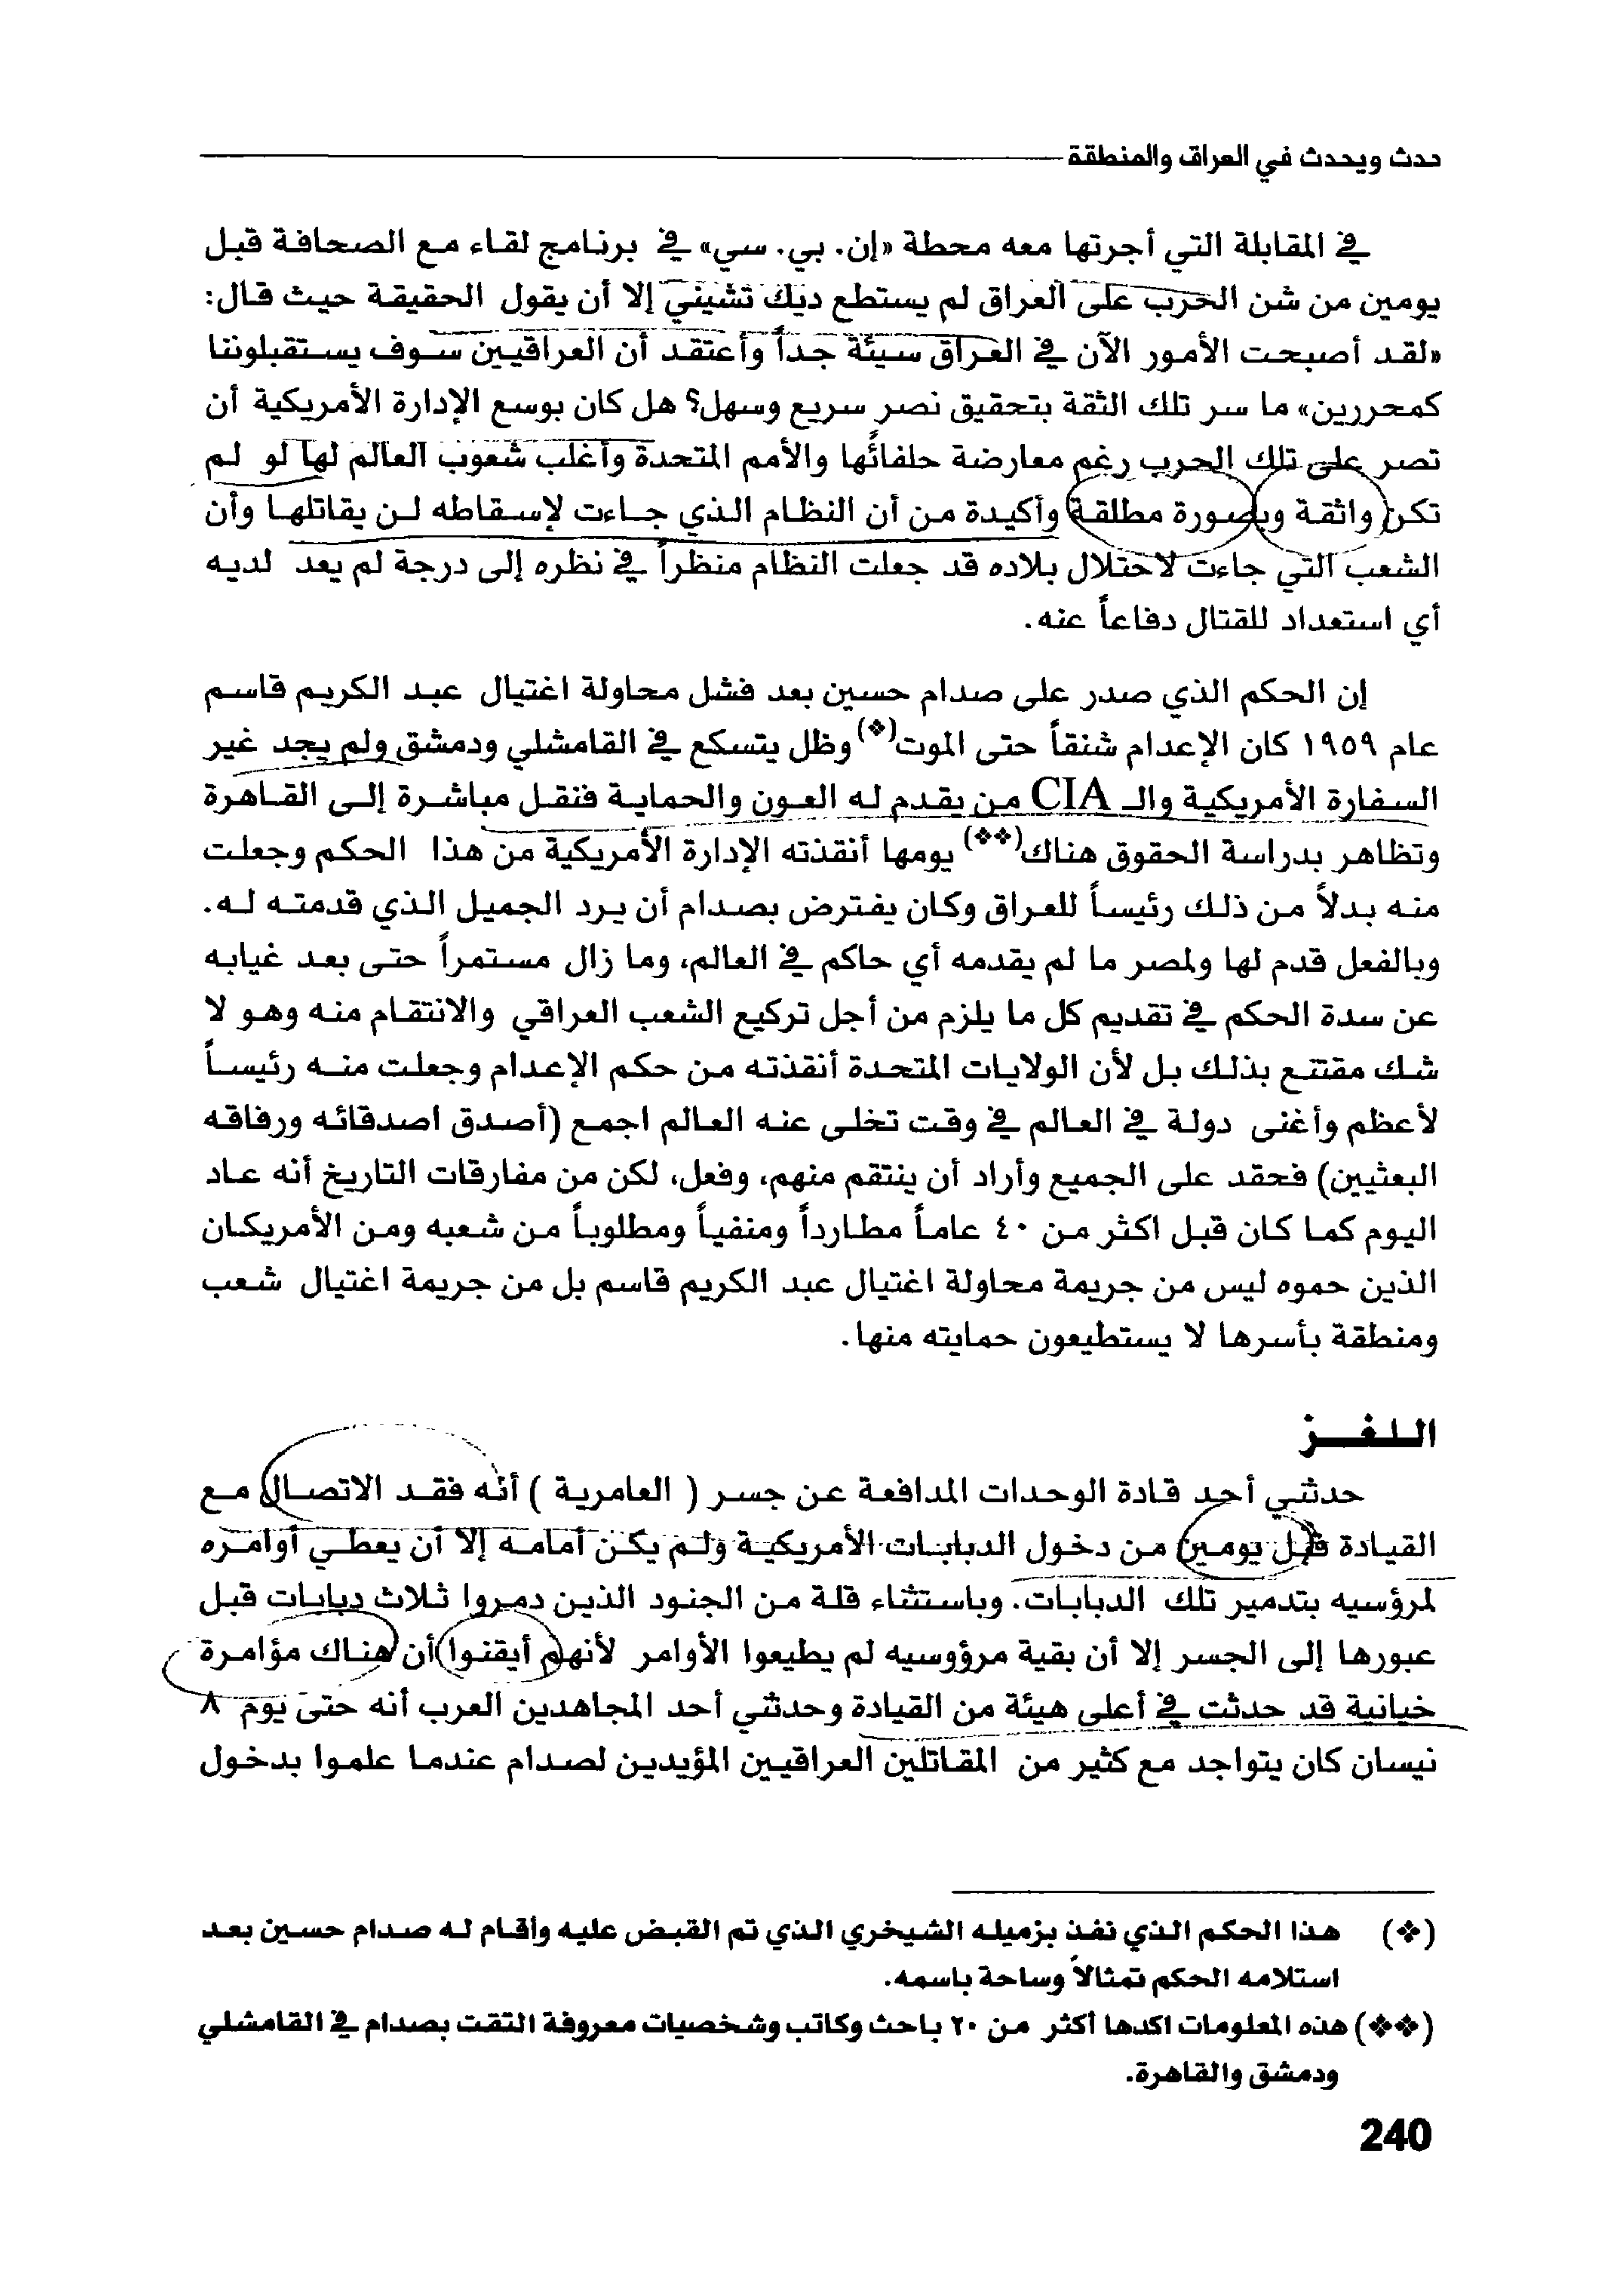 حدث ويحدث في العراق والمنطقة
في المقابلة التي أجرتها معه محطة «إن. بي. سي» في برنامج لقاء مع الصحافة قبل
يومين من شن الحرب على العراق لم يستطع ديك تشيني إلا أن يقول الحقيقة حيث قال:
«لقد أصبحت الأمور الآن في العراق سيئة جداً وأعتقد أن العراقيين سوف يستقبلوننا
كمحررين» ما سر تلك الثقة بتحقيق نصر سريع وسهل؟ هل كان بوسع الإدارة الأمريكية أن
تصر على تلك الحرب رغم معارضة حلفائُها والأمم المتحدة وأغلب شعوب العالم لها لو لم
تكن واثقة وبصورة مطلقة وأكيدة من أن النظام الذي جاءت لإسقاطه لن يقاتلها وأن
الشعب التي جاءت لاحتلال بلاده قد جعلت النظام منظراً في نظره إلى درجة لم يعد لديه
أي استعداد للقتال دفاعاً عنه.
إن الحكم الذي صدر على صدام حسين بعد فشل محاولة اغتيال عبد الكريم قاسم
عام ١٩٥٩ كان الإعدام شنقاً حتى الموت(❖) وظل يتسكع في القامشلي ودمشق ولم يجد غير
السفارة الأمريكية والـ CIA من يقدم له العون والحماية فنقل مباشرة إلى القاهرة
وتظاهر بدراسة الحقوق هناك(❖❖) يومها أنقذته الإدارة الأمريكية من هذا الحكم وجعلت
منه بدلاً من ذلك رئيساً للعراق وكان يفترض بصدام أن يرد الجميل الذي قدمته له.
وبالفعل قدم لها ولمصر ما لم يقدمه أي حاكم في العالم، وما زال مستمراً حتى بعد غيابه
عن سدة الحكم في تقديم كل ما يلزم من أجل تركيع الشعب العراقي والانتقام منه وهو لا
شك مقتنع بذلك بل لأن الولايات المتحدة أنقذته من حكم الإعدام وجعلت منه رئيساً
لأعظم وأغنى دولة في العالم في وقت تخلى عنه العالم اجمع (أصدق اصدقائه ورفاقه
البعثيين) فحقد على الجميع وأراد أن ينتقم منهم، وفعل، لكن من مفارقات التاريخ أنه عاد
اليوم كما كان قبل اكثر من ٤٠ عاماً مطارداً ومنفياً ومطلوباً من شعبه ومن الأمريكان
الذين حموه ليس من جريمة محاولة اغتيال عبد الكريم قاسم بل من جريمة اغتيال شعب
ومنطقة بأسرها لا يستطيعون حمايته منها.
اللغـز
حدثني أحد قادة الوحدات المدافعة عن جسر ( العامرية ) أنه فقد الاتصال مع
القيادة قبل يومين من دخول الدبابات الأمريكية ولم يكن أمامه إلا أن يعطي أوامره
لمرؤسيه بتدمير تلك الدبابات. وباستثناء قلة من الجنود الذين دمروا ثلاث دبابات قبل
عبورها إلى الجسر إلا أن بقية مرؤوسيه لم يطيعوا الأوامر لأنهم أيقنوا أن هناك مؤامرة
خيانية قد حدثت في أعلى هيئة من القيادة وحدثني أحد المجاهدين العرب أنه حتى يوم ٨
نيسان كان يتواجد مع كثير من المقاتلين العراقيين المؤيدين لصدام عندما علموا بدخول
(❖) هذا الحكم الذي نفذ بزميله الشيخري الذي تم القبض عليه وأقام له صدام حسين بعد
استلامه الحكم تمثالاً وساحة باسمه.
(❖❖) هذه المعلومات اكدها أكثر من ٢٠ باحث وكاتب وشخصيات معروفة التقت بصدام في القامشلي
ودمشق والقاهرة.
240